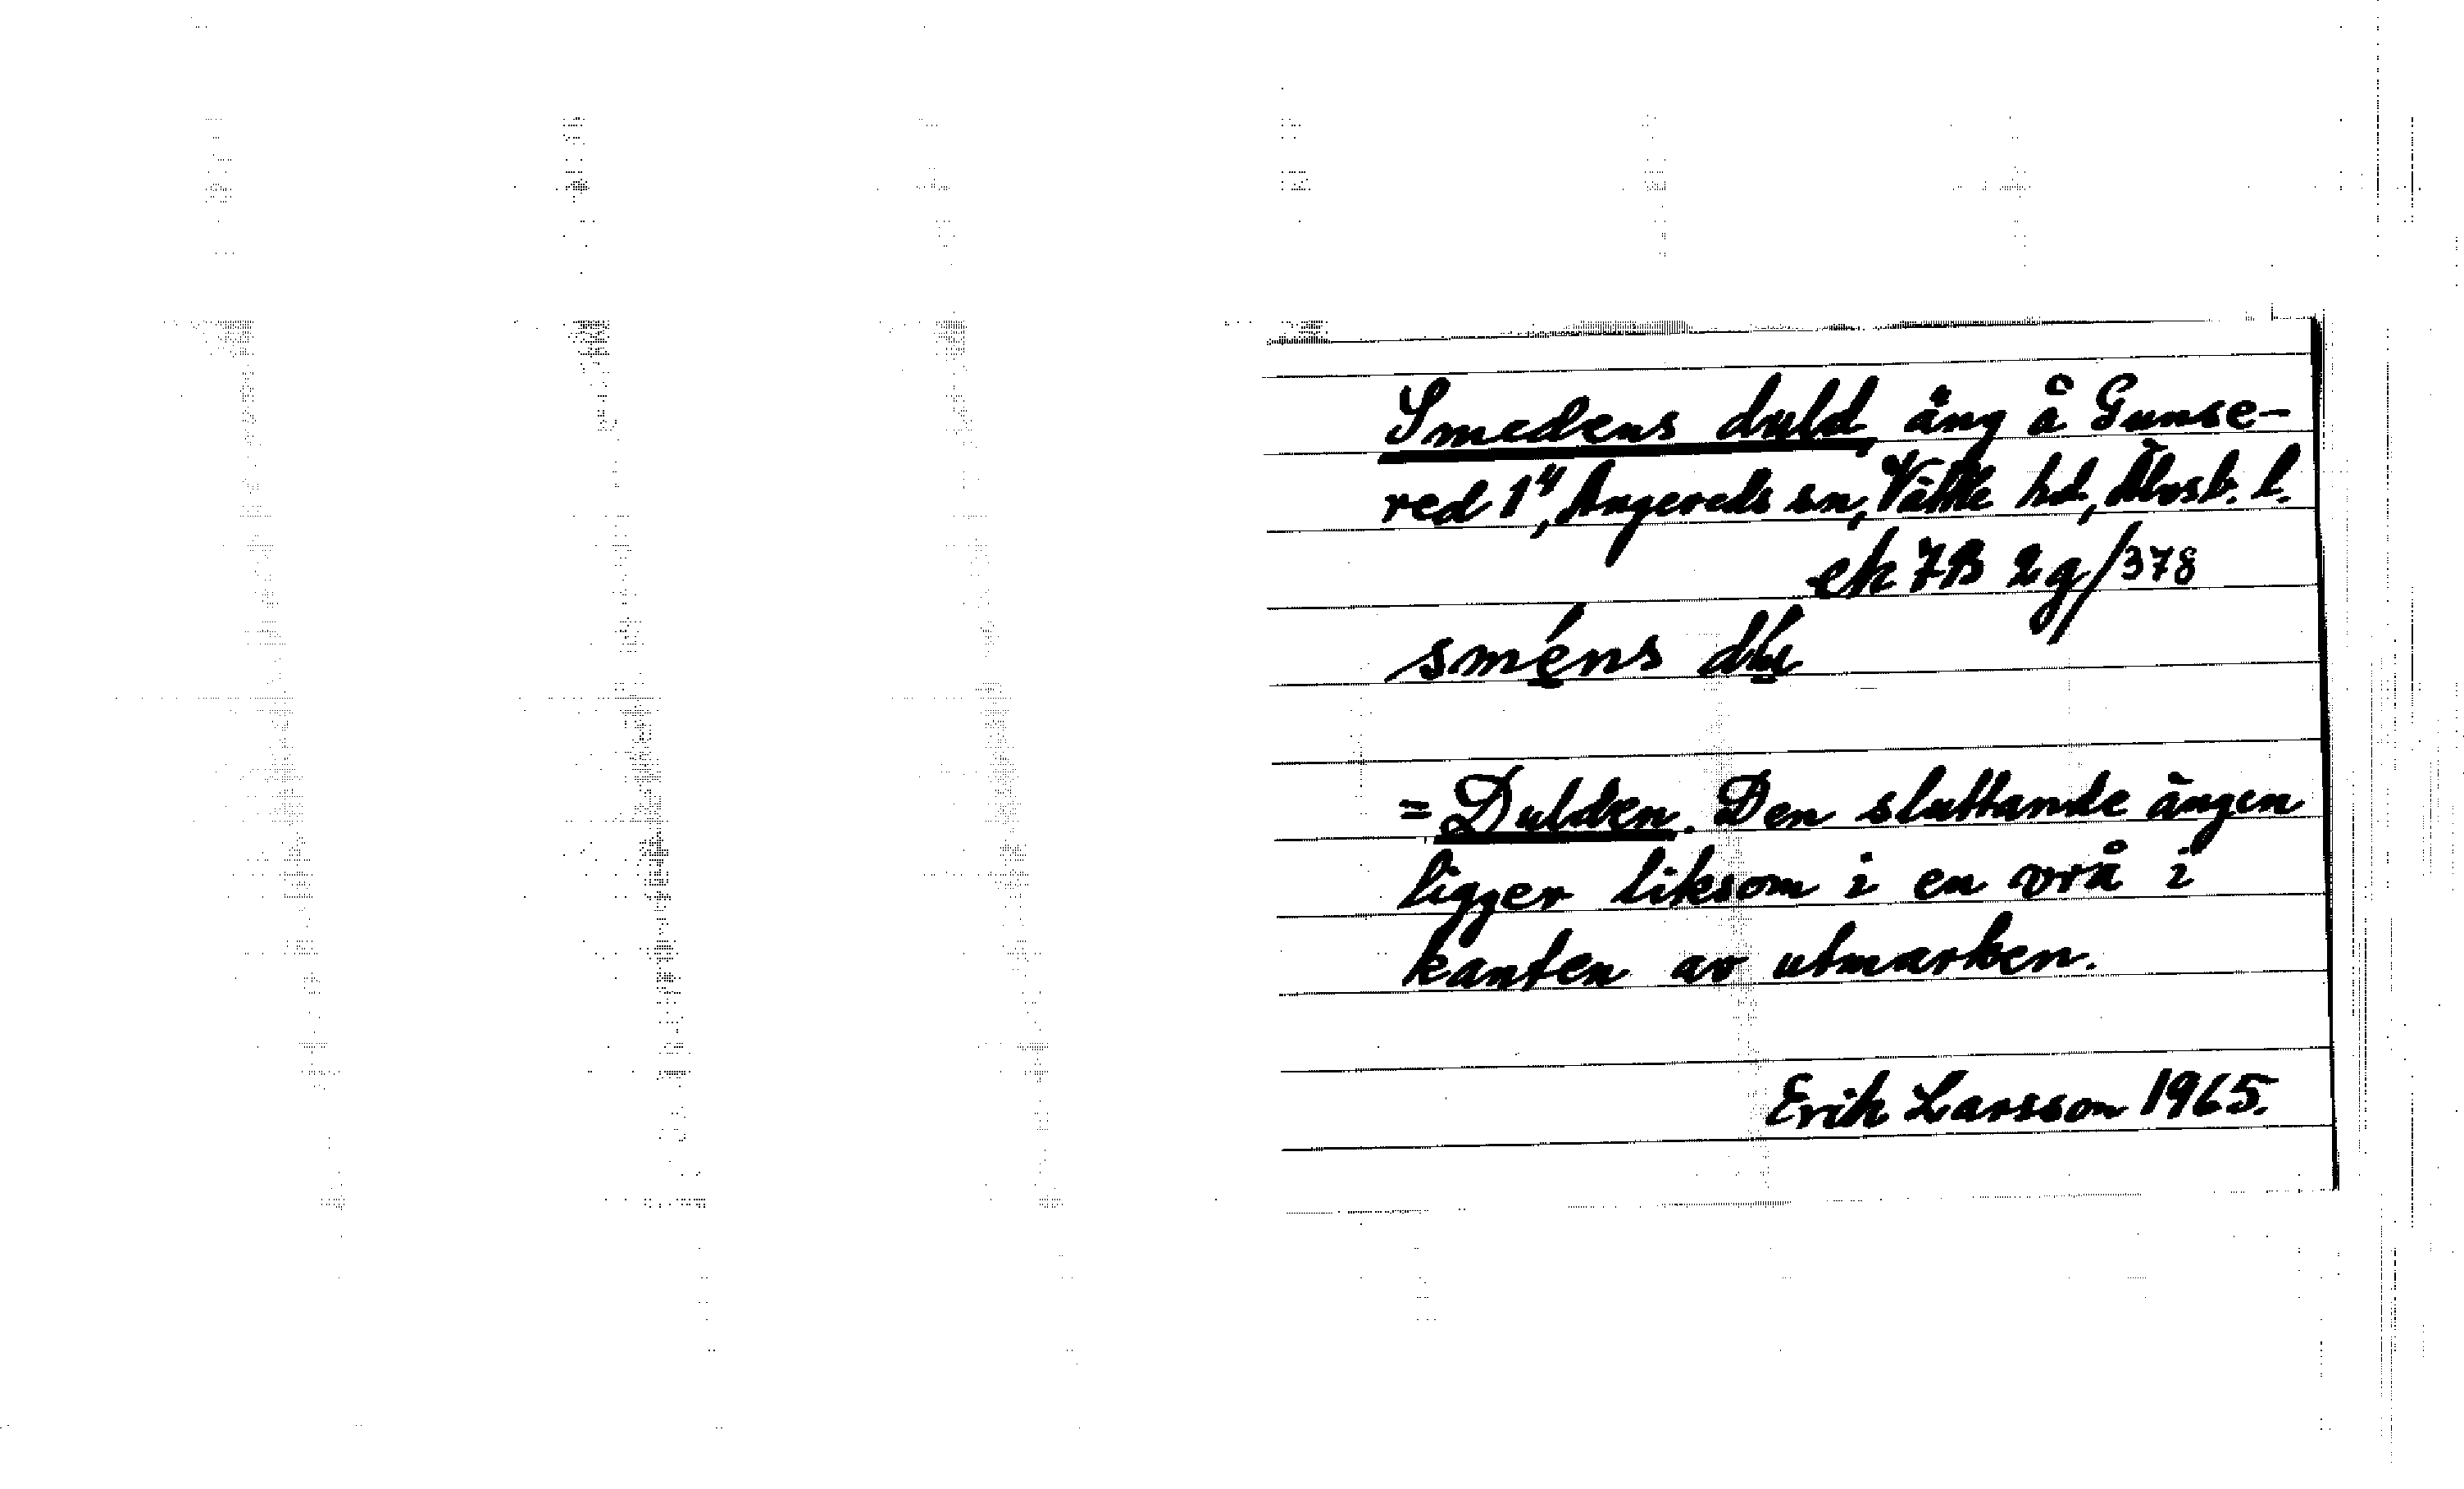 Smedens duld, äng å Gunse-
red 1⁴, Angereds sn, Vättle hd, Älvsb. l.
ek 7B 2g/378
sméns
= Dulden. Den sluttande ängen
ligger liksom i en vrå i
kanten av utmarken.
Erik Larsson 1965.